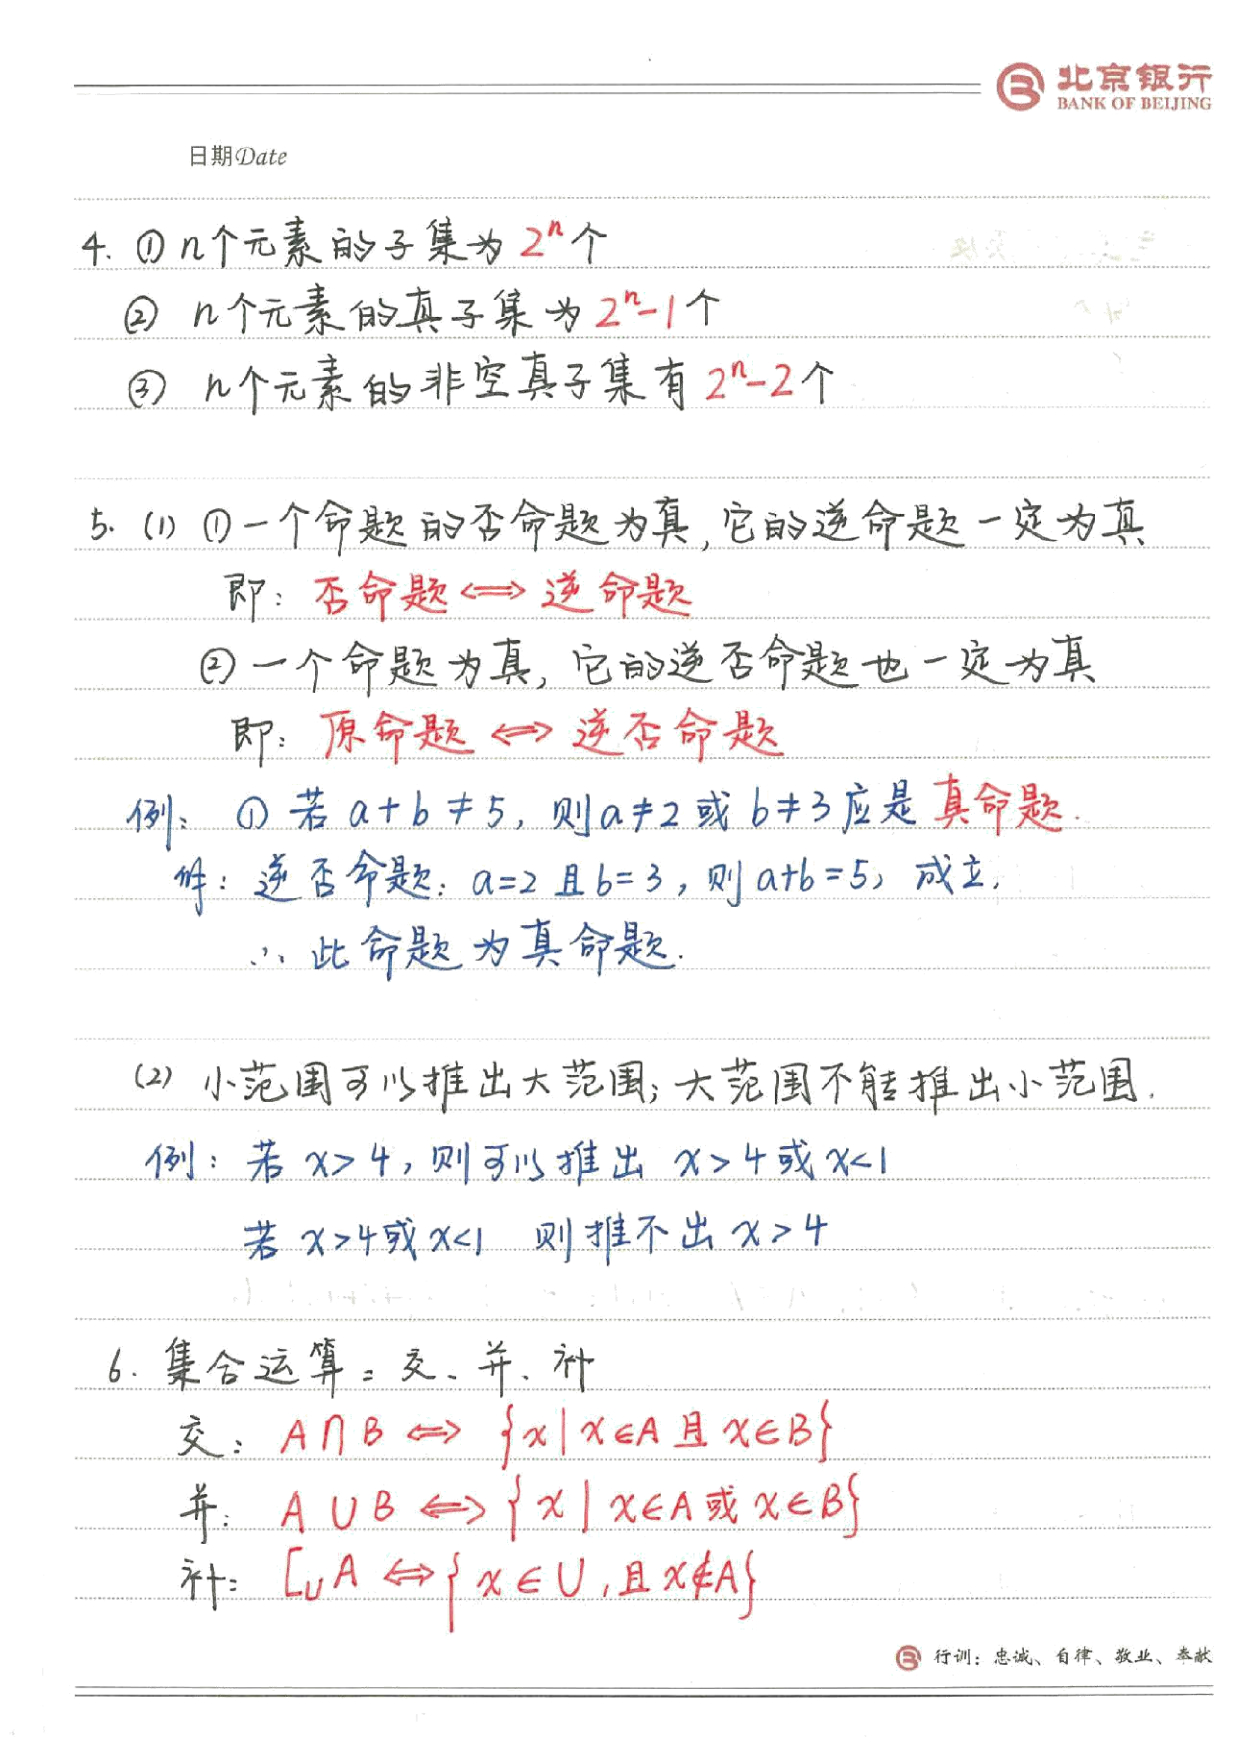 北京银行
BANK OF BEIJING
日期Date
4. ① n个元素的子集为 2ⁿ个
② n个元素的真子集为 2ⁿ-1个
③ n个元素的非空真子集有 2ⁿ-2个
5. (1) ①一个命题的否命题为真,它的逆命题一定为真
即: 否命题⇔逆命题
②一个命题为真, 它的逆否命题也一定为真
即: 原命题⇔逆否命题
例: ① 若 a+b≠5, 则a≠2或b≠3应是真命题.
解: 逆否命题: a=2且b=3, 则a+b=5, 成立.
∴ 此命题为真命题.
(2) 小范围可以推出大范围; 大范围不能推出小范围.
例: 若 x>4, 则可以推出 x>4或x<1
若 x>4或x<1 则推不出 x>4
6. 集合运算: 交、并、补
交: A∩B ⇔ {x|x∈A且x∈B}
并: A∪B ⇔ {x|x∈A或x∈B}
补: ∁UA ⇔ {x∈U,且x∉A}
行训: 忠诚、自律、敬业、奉献